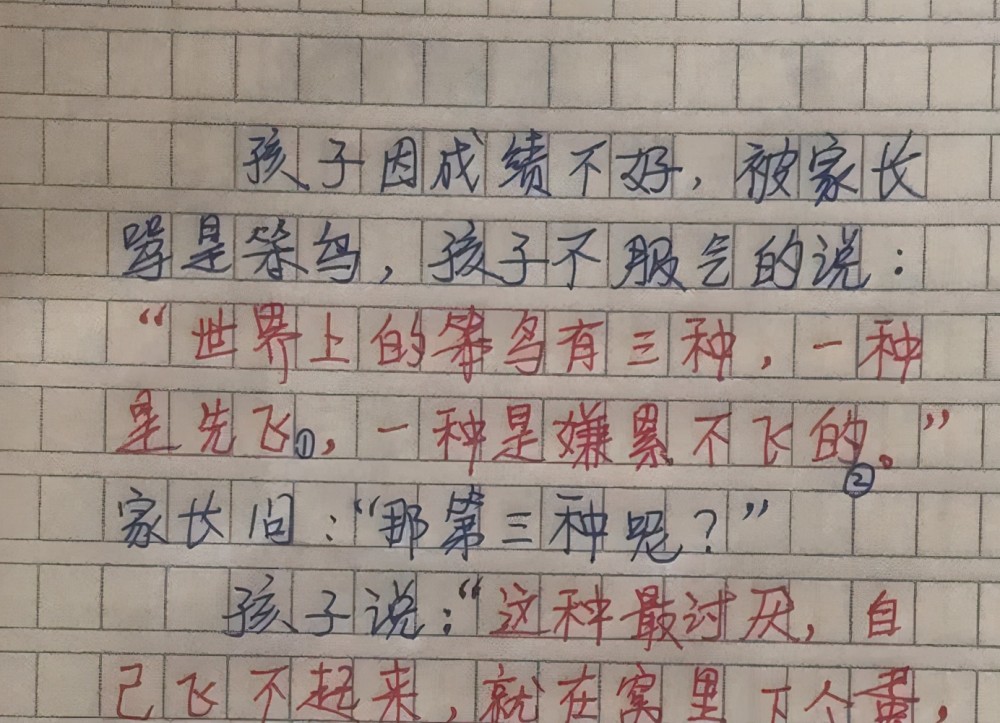 孩子因成绩不好，被家长
骂是笨鸟，孩子不服气的说：
“世界上的笨鸟有三种，一种
是先飞①，一种是嫌累不飞的。”②
家长问：“那第三种呢？”
孩子说：“这种最讨厌，自
己飞不起来，就在窝里下个蛋，